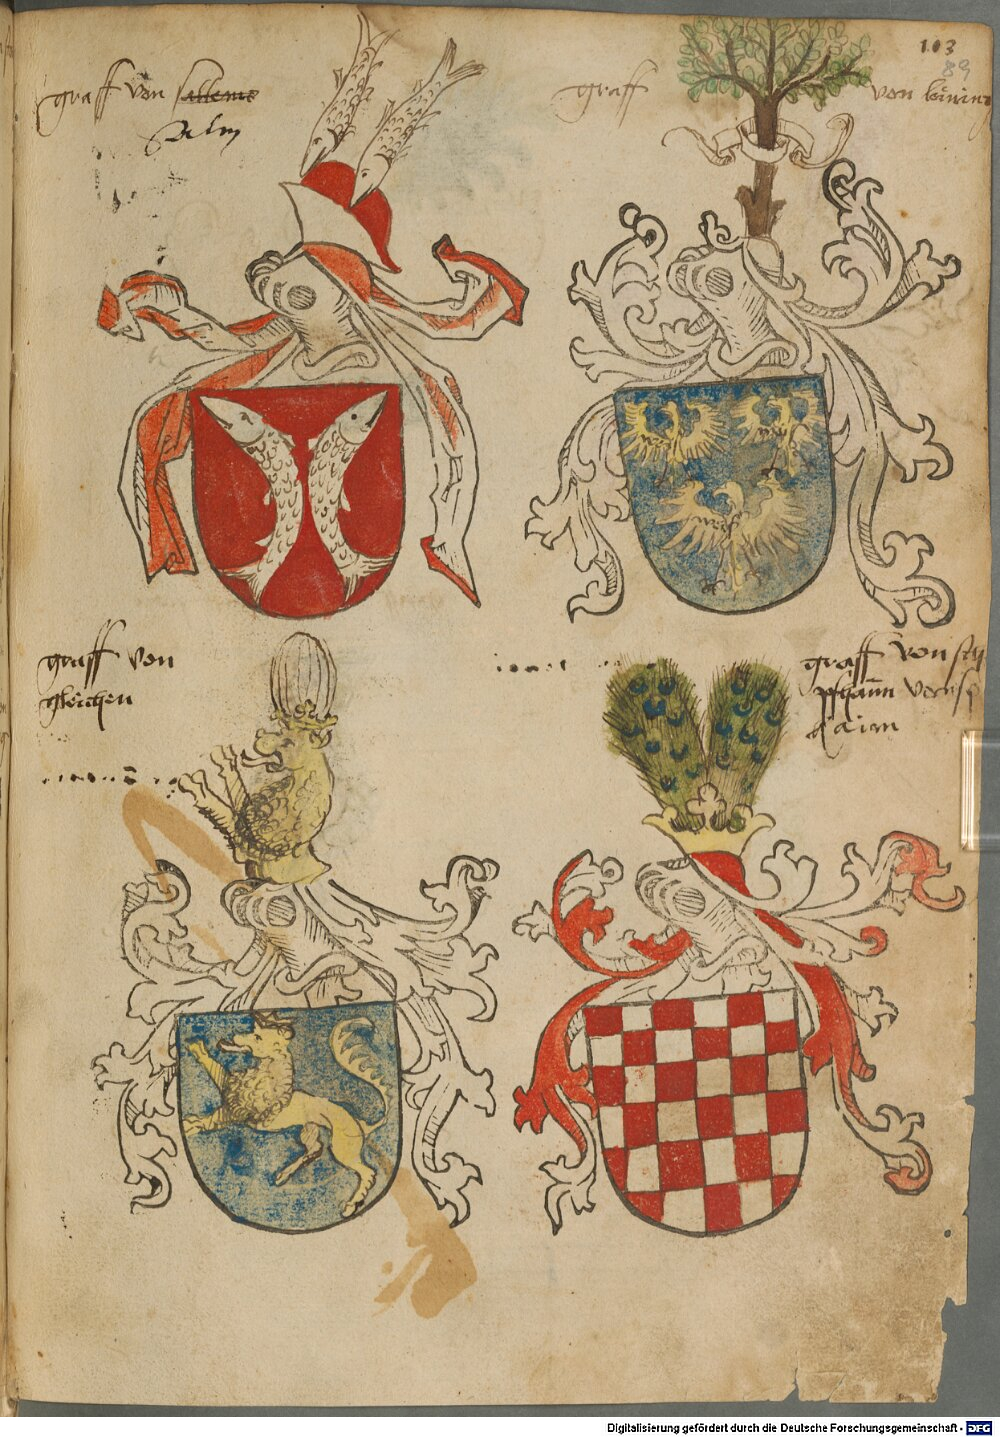 103
89
graff von salleme
Salm
graff von leining
graff von
gleichen
graff von
Digitalisierung gefördert durch die Deutsche Forschungsgemeinschaft - DFG